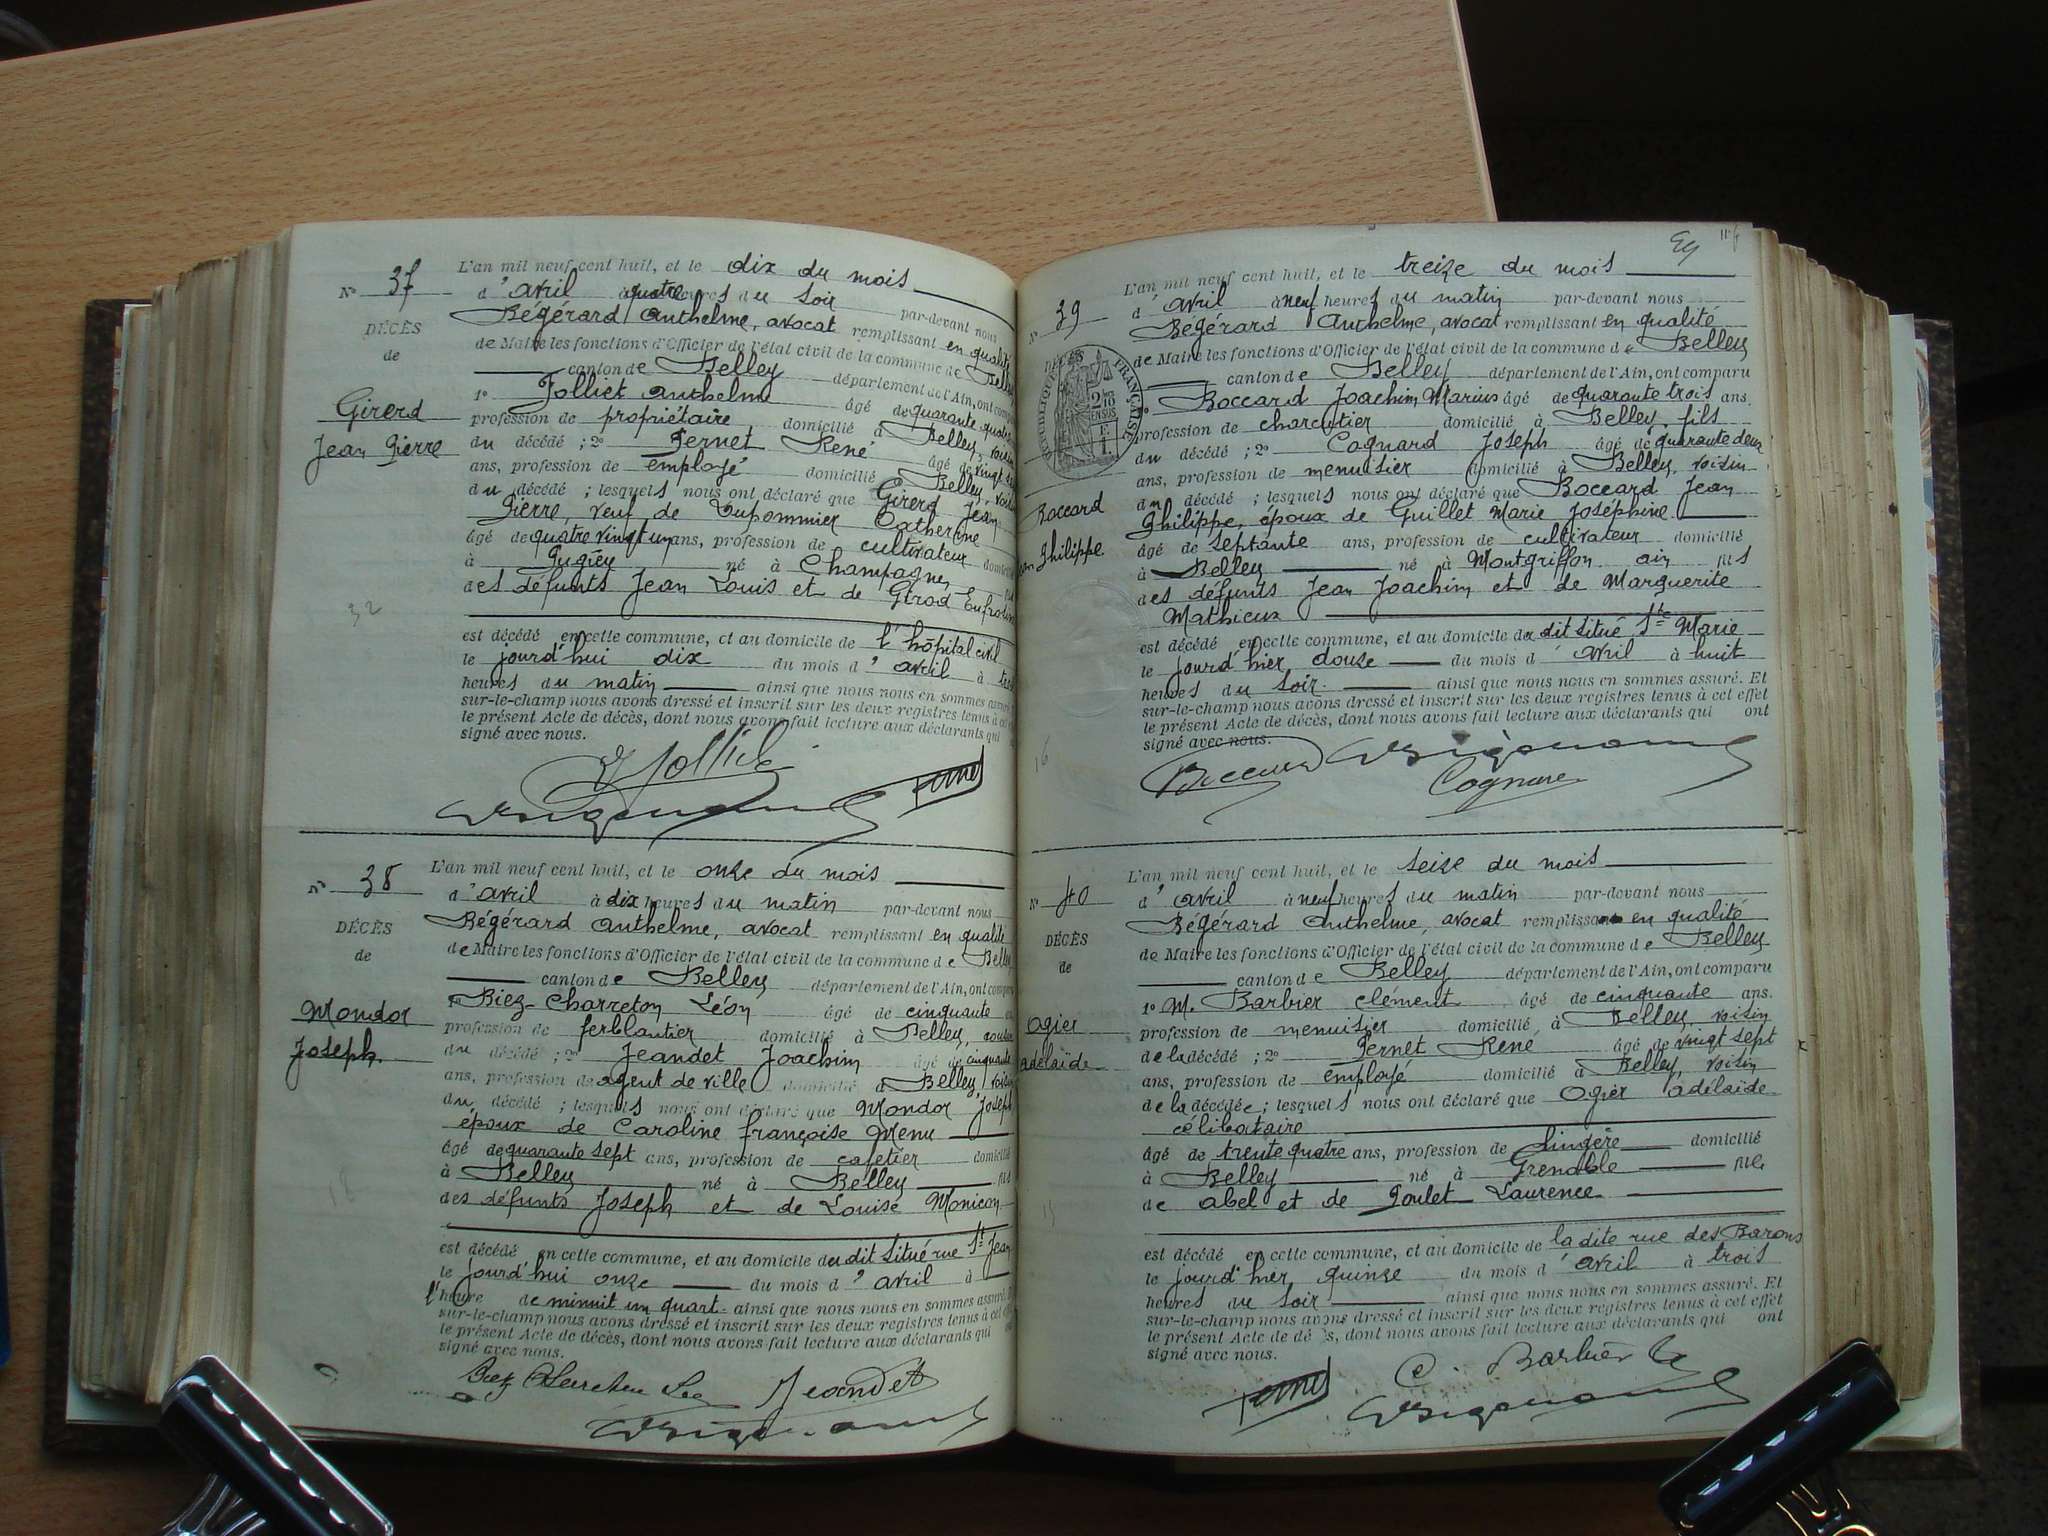 N° 37
DÉCÈS
de
Girerd
Jean Pierre
32
L'an mil neuf cent huit, et le dix du mois
d'avril à quatre heures du soir par-devant nous
Bégérard Anthelme, avocat remplissant en qualité
de Maire les fonctions d'Officier de l'état civil de la commune de Belley
canton de Belley département de l'Ain, ont comparu
1° Jolliet Anthelme âgé de quarante quatre
profession de propriétaire, domicilié à Belley, voisin
du décédé ; 2° Pernet René âgé de vingt sept
ans, profession de employé domicilié à Belley, voisin
du décédé ; lesquels nous ont déclaré que Girerd Jean
Pierre, veuf de Dupommier Catherine
âgé de quatre vingt un ans, profession de cultivateur domicilié
à Pugieu né à Champagne, fils
des défunts Jean Louis et de Girod Eufrosine
est décédé en cette commune, et au domicile de l'hôpital civil
le jourd'hui dix du mois d'avril à
heures du matin ainsi que nous nous en sommes assuré.
sur-le-champ nous avons dressé et inscrit sur les deux registres tenus à cet
le présent Acte de décès, dont nous avons fait lecture aux déclarants qui
signé avec nous.
Jolliet
Pernet
N° 38
DÉCÈS
de
Mondor
Joseph
18
L'an mil neuf cent huit, et le onze du mois
d'avril à dix heures du matin par-devant nous
Bégérard Anthelme, avocat remplissant en qualité
de Maire les fonctions d'Officier de l'état civil de la commune de Belley
canton de Belley département de l'Ain, ont comparu
Biez-Charreton Léon âgé de cinquante
profession de ferblantier domicilié à Belley, cousin
du décédé ; 2° Jeandet Joachim âgé de cinquante
ans, profession de agent de ville domicilié à Belley, voisin
du décédé ; lesquels nous ont déclaré que Mondor Joseph
époux de Caroline Françoise Menu
âgé de quarante sept ans, profession de cafetier domicilié
à Belley né à Belley fils
des défunts Joseph et de Louise Monicon
est décédé en cette commune, et au domicile du dit situé rue St Jean
le jourd'hui onze du mois d'avril à
l'heure de minuit un quart. ainsi que nous nous en sommes assuré.
sur-le-champ nous avons dressé et inscrit sur les deux registres tenus à cet
le présent Acte de décès, dont nous avons fait lecture aux déclarants qui
signé avec nous.
Biez Charreton Léon Jeandet
N° 39
DÉCÈS
RÉPUBLIQUE FRANÇAISE
Boccard
Jean Philippe
16
L'an mil neuf cent huit, et le treize du mois
d'avril à neuf heures du matin par-devant nous
Bégérard Anthelme, avocat remplissant en qualité
de Maire les fonctions d'Officier de l'état civil de la commune de Belley
canton de Belley département de l'Ain, ont comparu
1° Boccard Joachim Marius âgé de quarante trois ans.
profession de charcutier domicilié à Belley, fils
du décédé ; 2° Cognard Joseph âgé de quarante deux
ans, profession de menuisier domicilié à Belley, voisin
du décédé ; lesquels nous ont déclaré que Boccard Jean
Philippe, époux de Guillet Marie Joséphine
âgé de septante ans, profession de cultivateur domicilié
à Belley né à Montgriffon ain fils
des défunts Jean Joachim et de Marguerite
Mathieux
est décédé en cette commune, et au domicile du dit situé Ste Marie
le jourd'hier douze du mois d'avril à huit
heures du soir. ainsi que nous nous en sommes assuré. Et
sur-le-champ nous avons dressé et inscrit sur les deux registres tenus à cet effet
le présent Acte de décès, dont nous avons fait lecture aux déclarants qui ont
signé avec nous.
Boccard
Cognard
N° 40
DÉCÈS
de
Ogier
Adélaïde
L'an mil neuf cent huit, et le seize du mois
d'avril à neuf heures du matin par-devant nous
Bégérard Anthelme, avocat remplissant en qualité
de Maire les fonctions d'Officier de l'état civil de la commune de Belley
canton de Belley département de l'Ain, ont comparu
1° M. Barbier Clément âgé de cinquante ans.
profession de menuisier domicilié à Belley, voisin
de la décédé ; 2° Pernet René âgé de vingt sept
ans, profession de employé domicilié à Belley, voisin
de la décédée ; lesquels nous ont déclaré que Ogier Adélaïde
célibataire
âgé de trente quatre ans, profession de lingère domicilié
à Belley né à Grenoble fille
de Abel et de Poulet Laurence
est décédé en cette commune, et au domicile de la dite rue des Barons
le jourd'hier quinze du mois d'avril à trois
heures du soir ainsi que nous nous en sommes assuré. Et
sur-le-champ nous avons dressé et inscrit sur les deux registres tenus à cet effet
le présent Acte de dé s, dont nous avons fait lecture aux déclarants qui ont
signé avec nous.
C. Barbier
Pernet